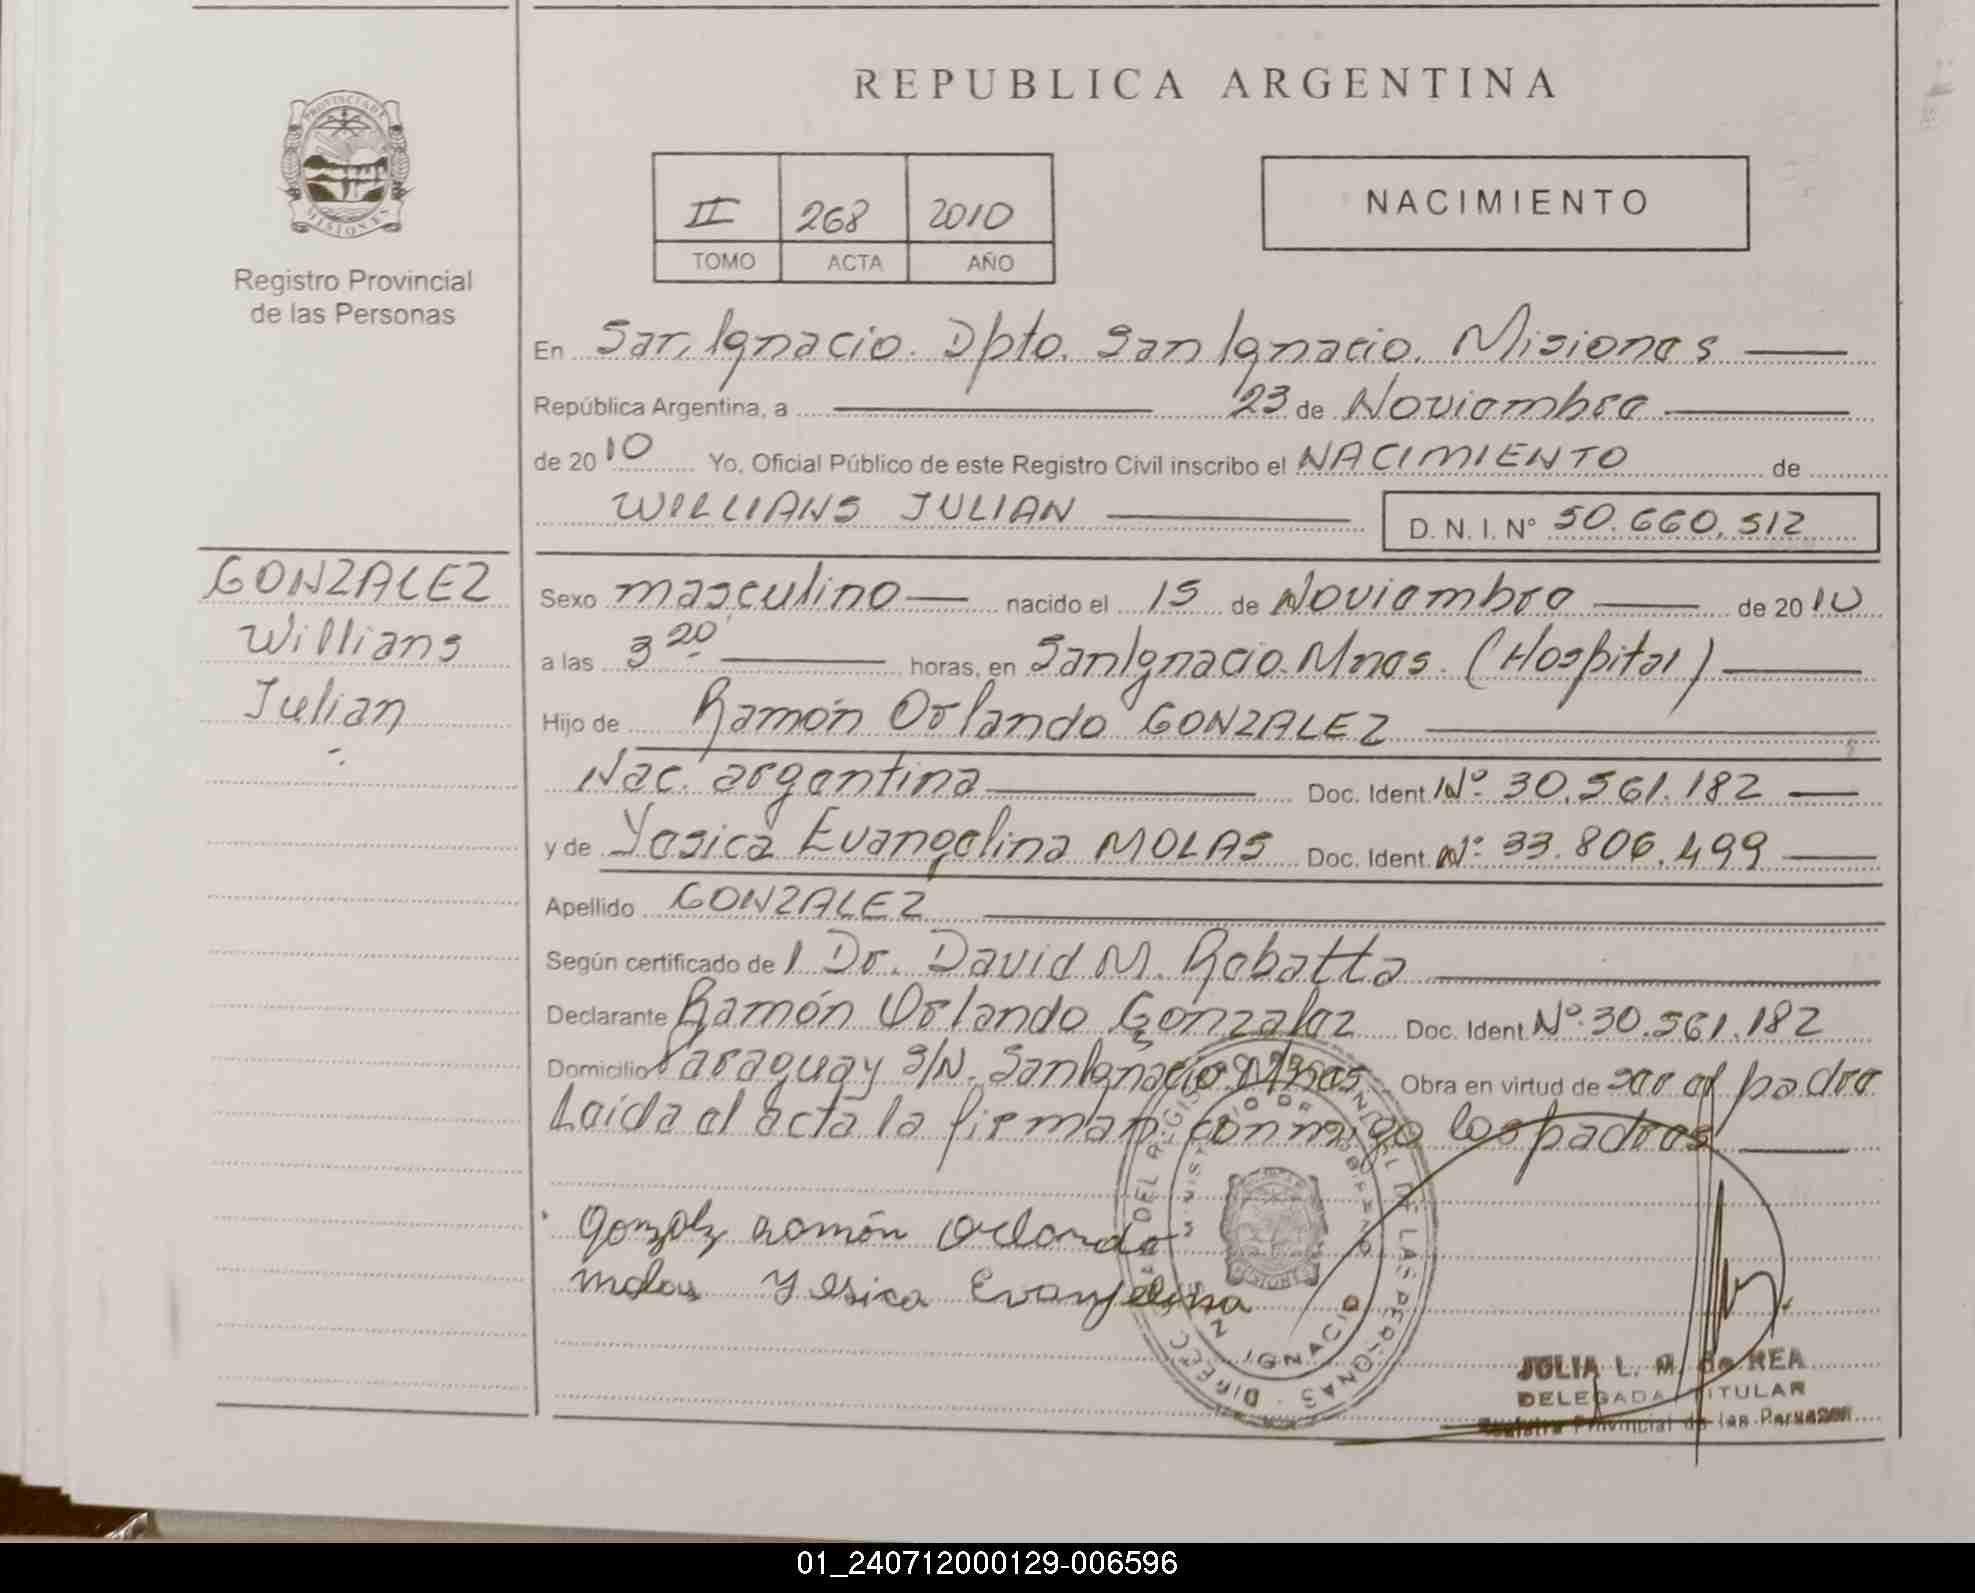 REPUBLICA ARGENTINA
PROVINCIA DE
MISIONES
Registro Provincial
de las Personas
II 268 2010
TOMO ACTA AÑO
NACIMIENTO
En San Ignacio. Dpto. San Ignacio. Misiones
República Argentina, a 23 de Noviembre
de 2010 Yo, Oficial Público de este Registro Civil inscribo el NACIMIENTO de
WILLIANS JULIAN D. N. I. Nº 50.660.512
GONZALEZ
Willians
Julian
Sexo masculino nacido el 15 de Noviembre de 2010
a las 3 20 horas, en San Ignacio. Mnes. (Hospital)
Hijo de Ramón Orlando GONZALEZ
Nac. argentina Doc. Ident. Nº 30.561.182
y de Yesica Evangelina MOLAS Doc. Ident. Nº 33.806.499
Apellido GONZALEZ
Según certificado de l Dr. David M. Robatta
Declarante Ramón Orlando Gonzalez Doc. Ident. Nº 30.561.182
Domicilio Paraguay S/N. San Ignacio Mnes. Obra en virtud de ser el padre
Leida el acta la firman conmigo los padres
Gonzalz Ramón Orlando
Molas Yesica Evanjelina
DIREC DEL REGISTRO PROVINCIAL DE LAS PERSONAS
MINISTERIO DE GOBIERNO
SAN IGNACIO
JULIA L. M. de REA
DELEGADA TITULAR
Registro Provincial de las Personas
01_240712000129-006596